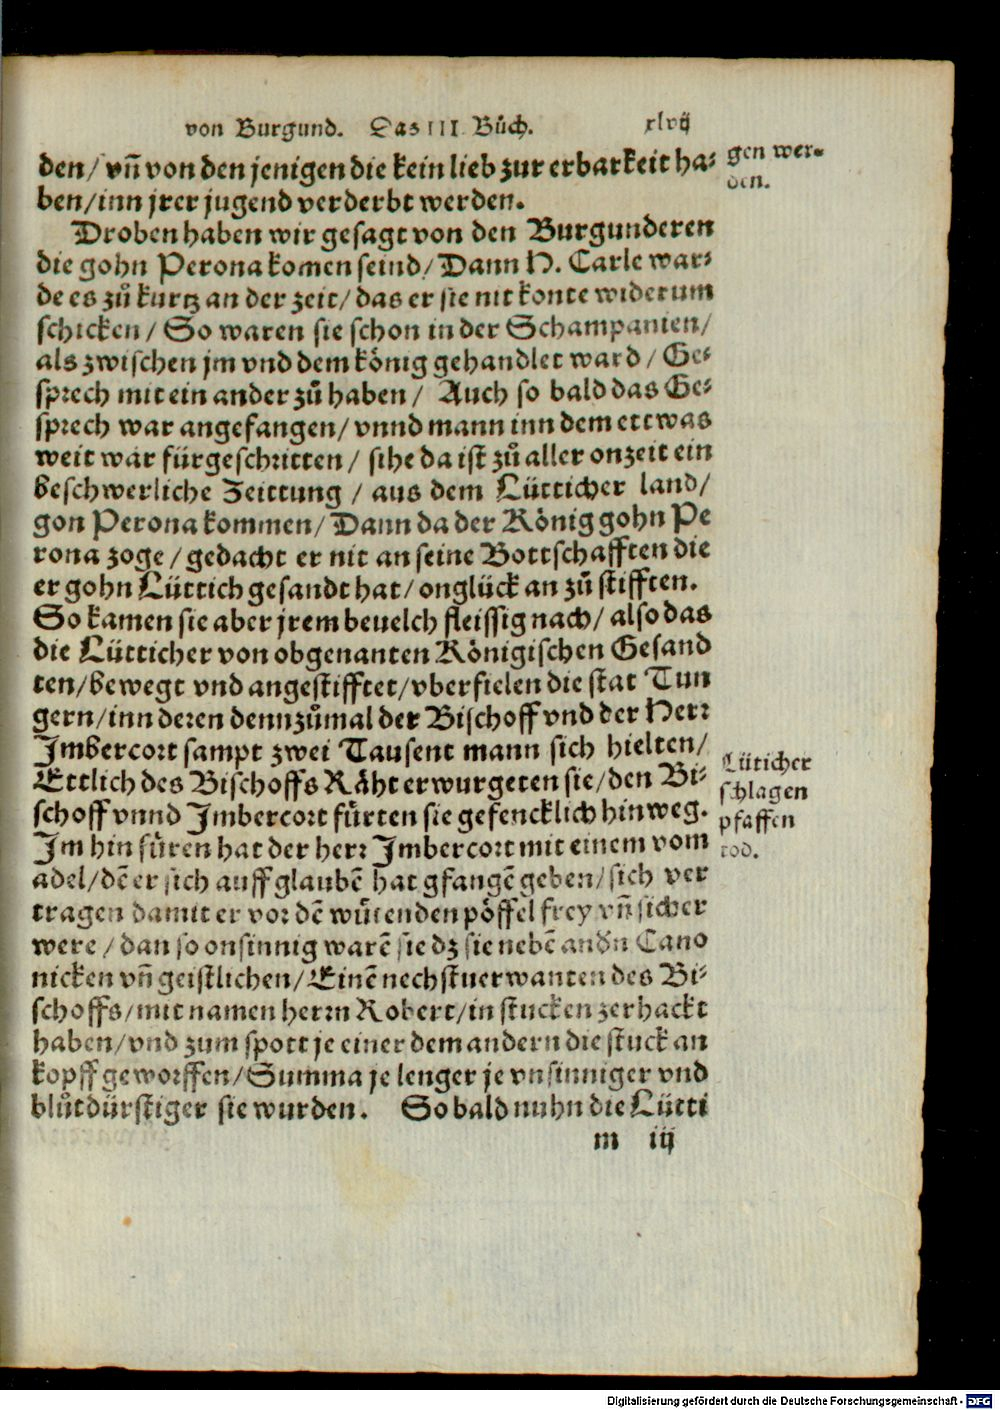 von Burgund. Das III. Bůch. xlvij
den/ vñ von den jenigen die kein lieb zur erbarkeit ha⸗
gen wer⸗
den.
ben/ inn jrer jugend verderbt werden.
Droben haben wir gesagt von den Burgunderen
die gohn Perona komen seind/ Dann H. Carle war⸗
de es zů kurtz an der zeit/ das er sie nit konte widerum
schicken/ So waren sie schon in der Schampanien/
als zwischen jm vnd dem könig gehandlet ward/ Ge⸗
sprech mit ein ander zů haben/ Auch so bald das Ge⸗
sprech war angefangen/ vnnd mann inn dem ettwas
weit war fürgeschritten/ sihe da ist zů aller onzeit ein
beschwerliche Zeittung / aus dem Lütticher land/
gon Perona kommen/ Dann da der König gohn Pe
rona zoge/ gedacht er nit an seine Bottschafften die
er gohn Lüttich gesandt hat/ onglück an zů stifften.
So kamen sie aber jrem beuelch fleissig nach/ also das
die Lütticher von obgenanten Königischen Gesand
ten/ bewegt vnd angestifftet/ vberfielen die stat Tun
gern/ inn deren dennzůmal der Bischoff vnd der Herr
Jmbercort sampt zwei Tausent mann sich hielten/
Ettlich des Bischoffs Räht erwurgeten sie/ den Bi⸗
schoff vnnd Jmbercort fürten sie gefencklich hinweg.
Lüticher
schlagen
pfaffen
tod.
Jm hin füren hat der herr Jmbercort mit einem vom
adel/ dē er sich auff glaubē hat gfangē geben/ sich ver
tragen damit er vor dē wůtenden pöffel frey vñ sicher
were/ dan so onsinnig warē sie dz sie nebē andn Cano
nicken vñ geistlichen/ Einē nechstuerwanten des Bi⸗
schoffs/ mit namen herrn Robert/ in stucken zerhackt
haben/ vnd zum spott je einer dem andern die stuck an
kopff geworffen/ Summa je lenger je vnsinniger vnd
blůtdürstiger sie wurden. So bald nuhn die Lütti
m iij
Digitalisierung gefördert durch die Deutsche Forschungsgemeinschaft - DFG